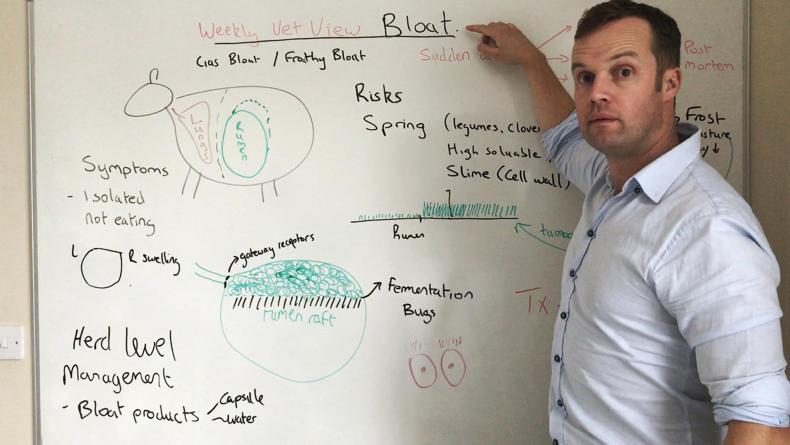 Weekly Vet View Bloat.
Gas Bloat / Frothy Bloat
Sudden
Post
mortem
Risks
Spring (legumes, clove
High soluable
Slime (Cell wall)
Frost
Lungs
Rumen
Symptoms
- Isolated
not eating
L R swelling
gateway receptors
Rumen
Rumen raft
Fermentation
Bugs
Tx
Herd level
Management
- Bloat products
Capsille
water